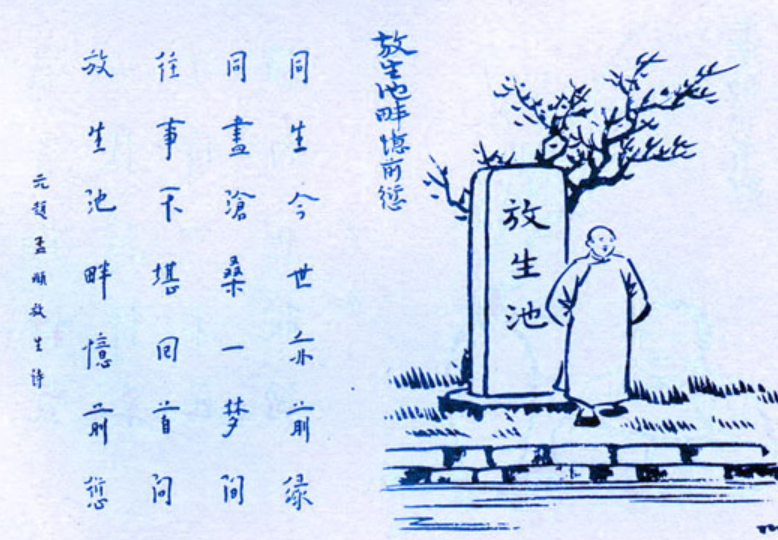 放生池
放生池畔憶前愆
同生今世亦前緣
同盡滄桑一梦間
往事不堪回首問
放生池畔憶前愆
元趙孟頫放生詩